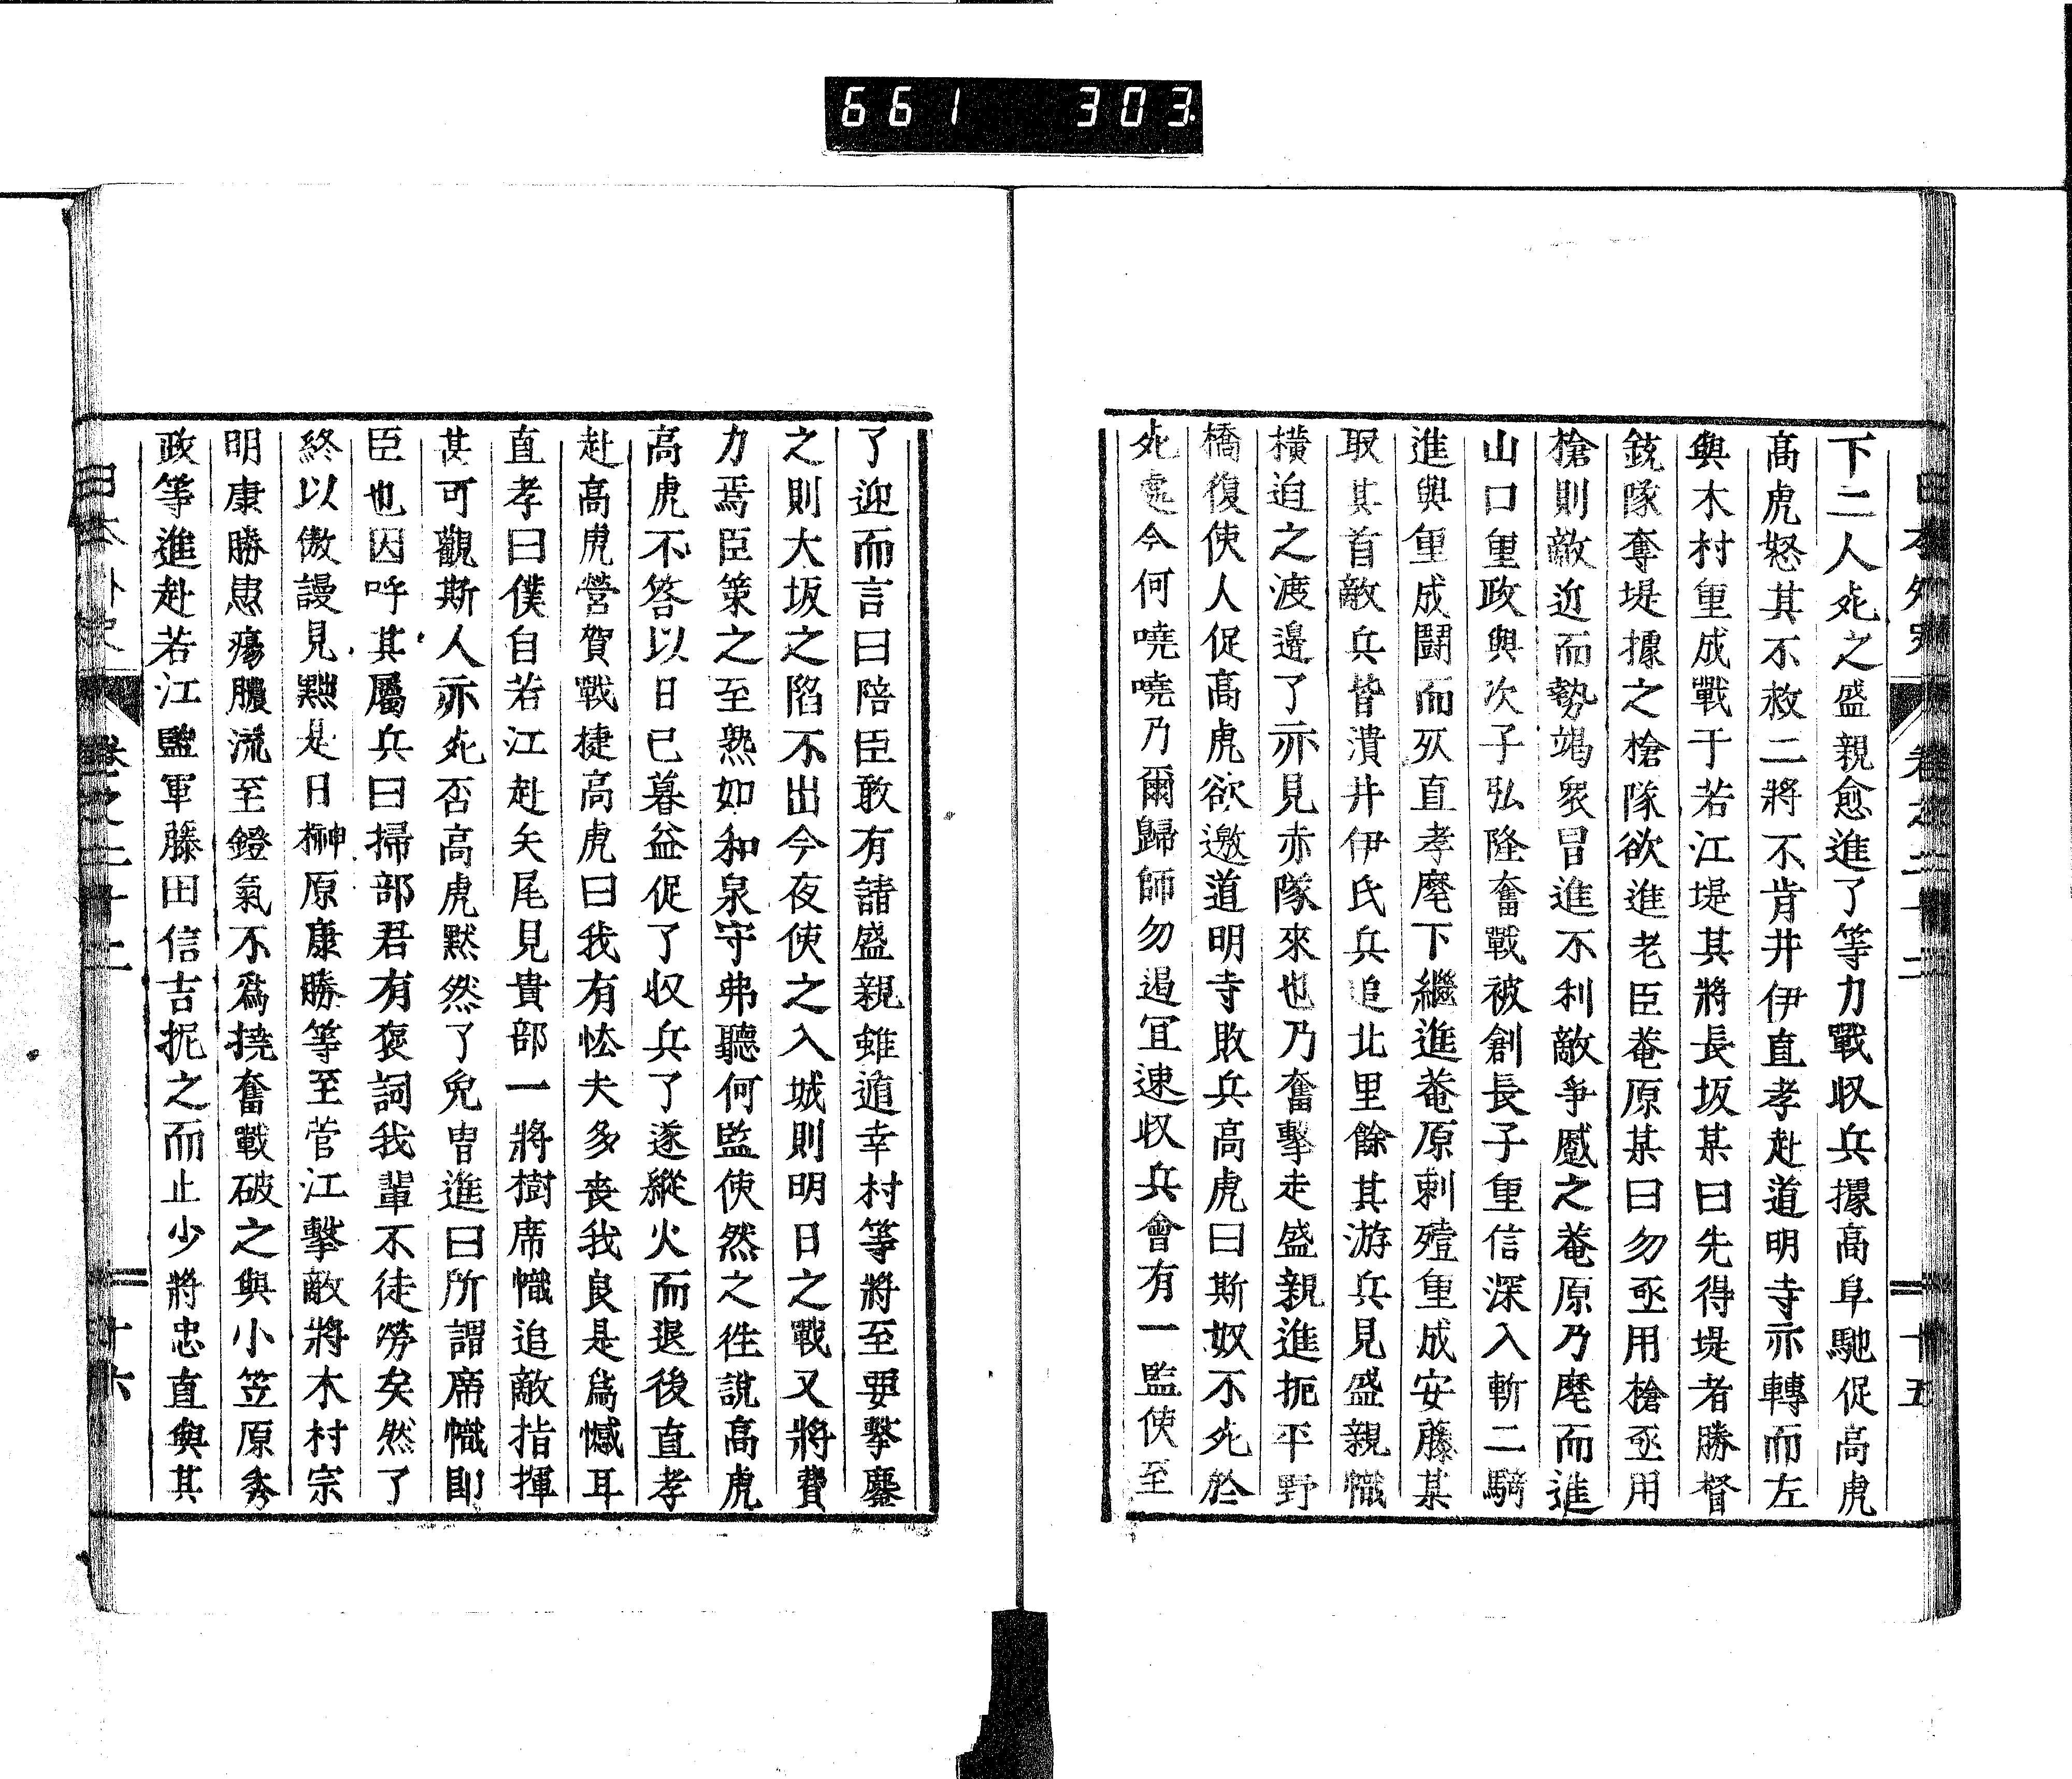 661 303
日本外史 卷之二十二 十五
下二人死之盛親愈進了等力戰收兵據高阜馳促高虎
高虎怒其不救二將不肯井伊直孝赴道明寺亦轉而左
與木村重成戰于若江堤其將長坂某曰先得堤者勝督
銃隊奪堤據之槍隊欲進老臣菴原某曰勿亟用槍亟用
槍則敵近而勢竭衆冒進不利敵爭慼之菴原乃麾而進
山口重政與次子弘隆奮戰被創長子重信深入斬二騎
進與重成鬪而死直孝麾下繼進菴原刺殪重成安藤某
取其首敵兵皆潰井伊氏兵追北里餘其游兵見盛親幟
橫迫之渡邊了亦見赤隊來也乃奮擊走盛親進扼平野
橋復使人促高虎欲邀道明寺敗兵高虎曰斯奴不死於
死處今何嘵嘵乃爾歸師勿遏宜速收兵會有一監使至
了迎而言曰陪臣敢有諸盛親雖遁幸村等將至要擊鏖
之則大坂之陷不出今夜使之入城則明日之戰又將費
力焉臣策之至熟如和泉守弗聽何監使然之往說高虎
高虎不答以日已暮益促了收兵了遂縱火而退後直孝
赴高虎營賀戰捷高虎曰我有怯夫多喪我良是爲憾耳
直孝曰僕自若江赴矢尾見貴部一將樹席幟追敵指揮
甚可觀斯人亦死否高虎默然了免冑進曰所謂席幟卽
臣也因呼其屬兵曰掃部君有褒詞我輩不徒勞矣然了
終以傲謾見黜是日榊原康勝等至菅江擊敵將木村宗
明康勝患瘍膿流至鐙氣不爲撓奮戰破之與小笠原秀
政等進赴若江監軍藤田信吉扼之而止少將忠直與其
日本外史 卷之二十二 十六